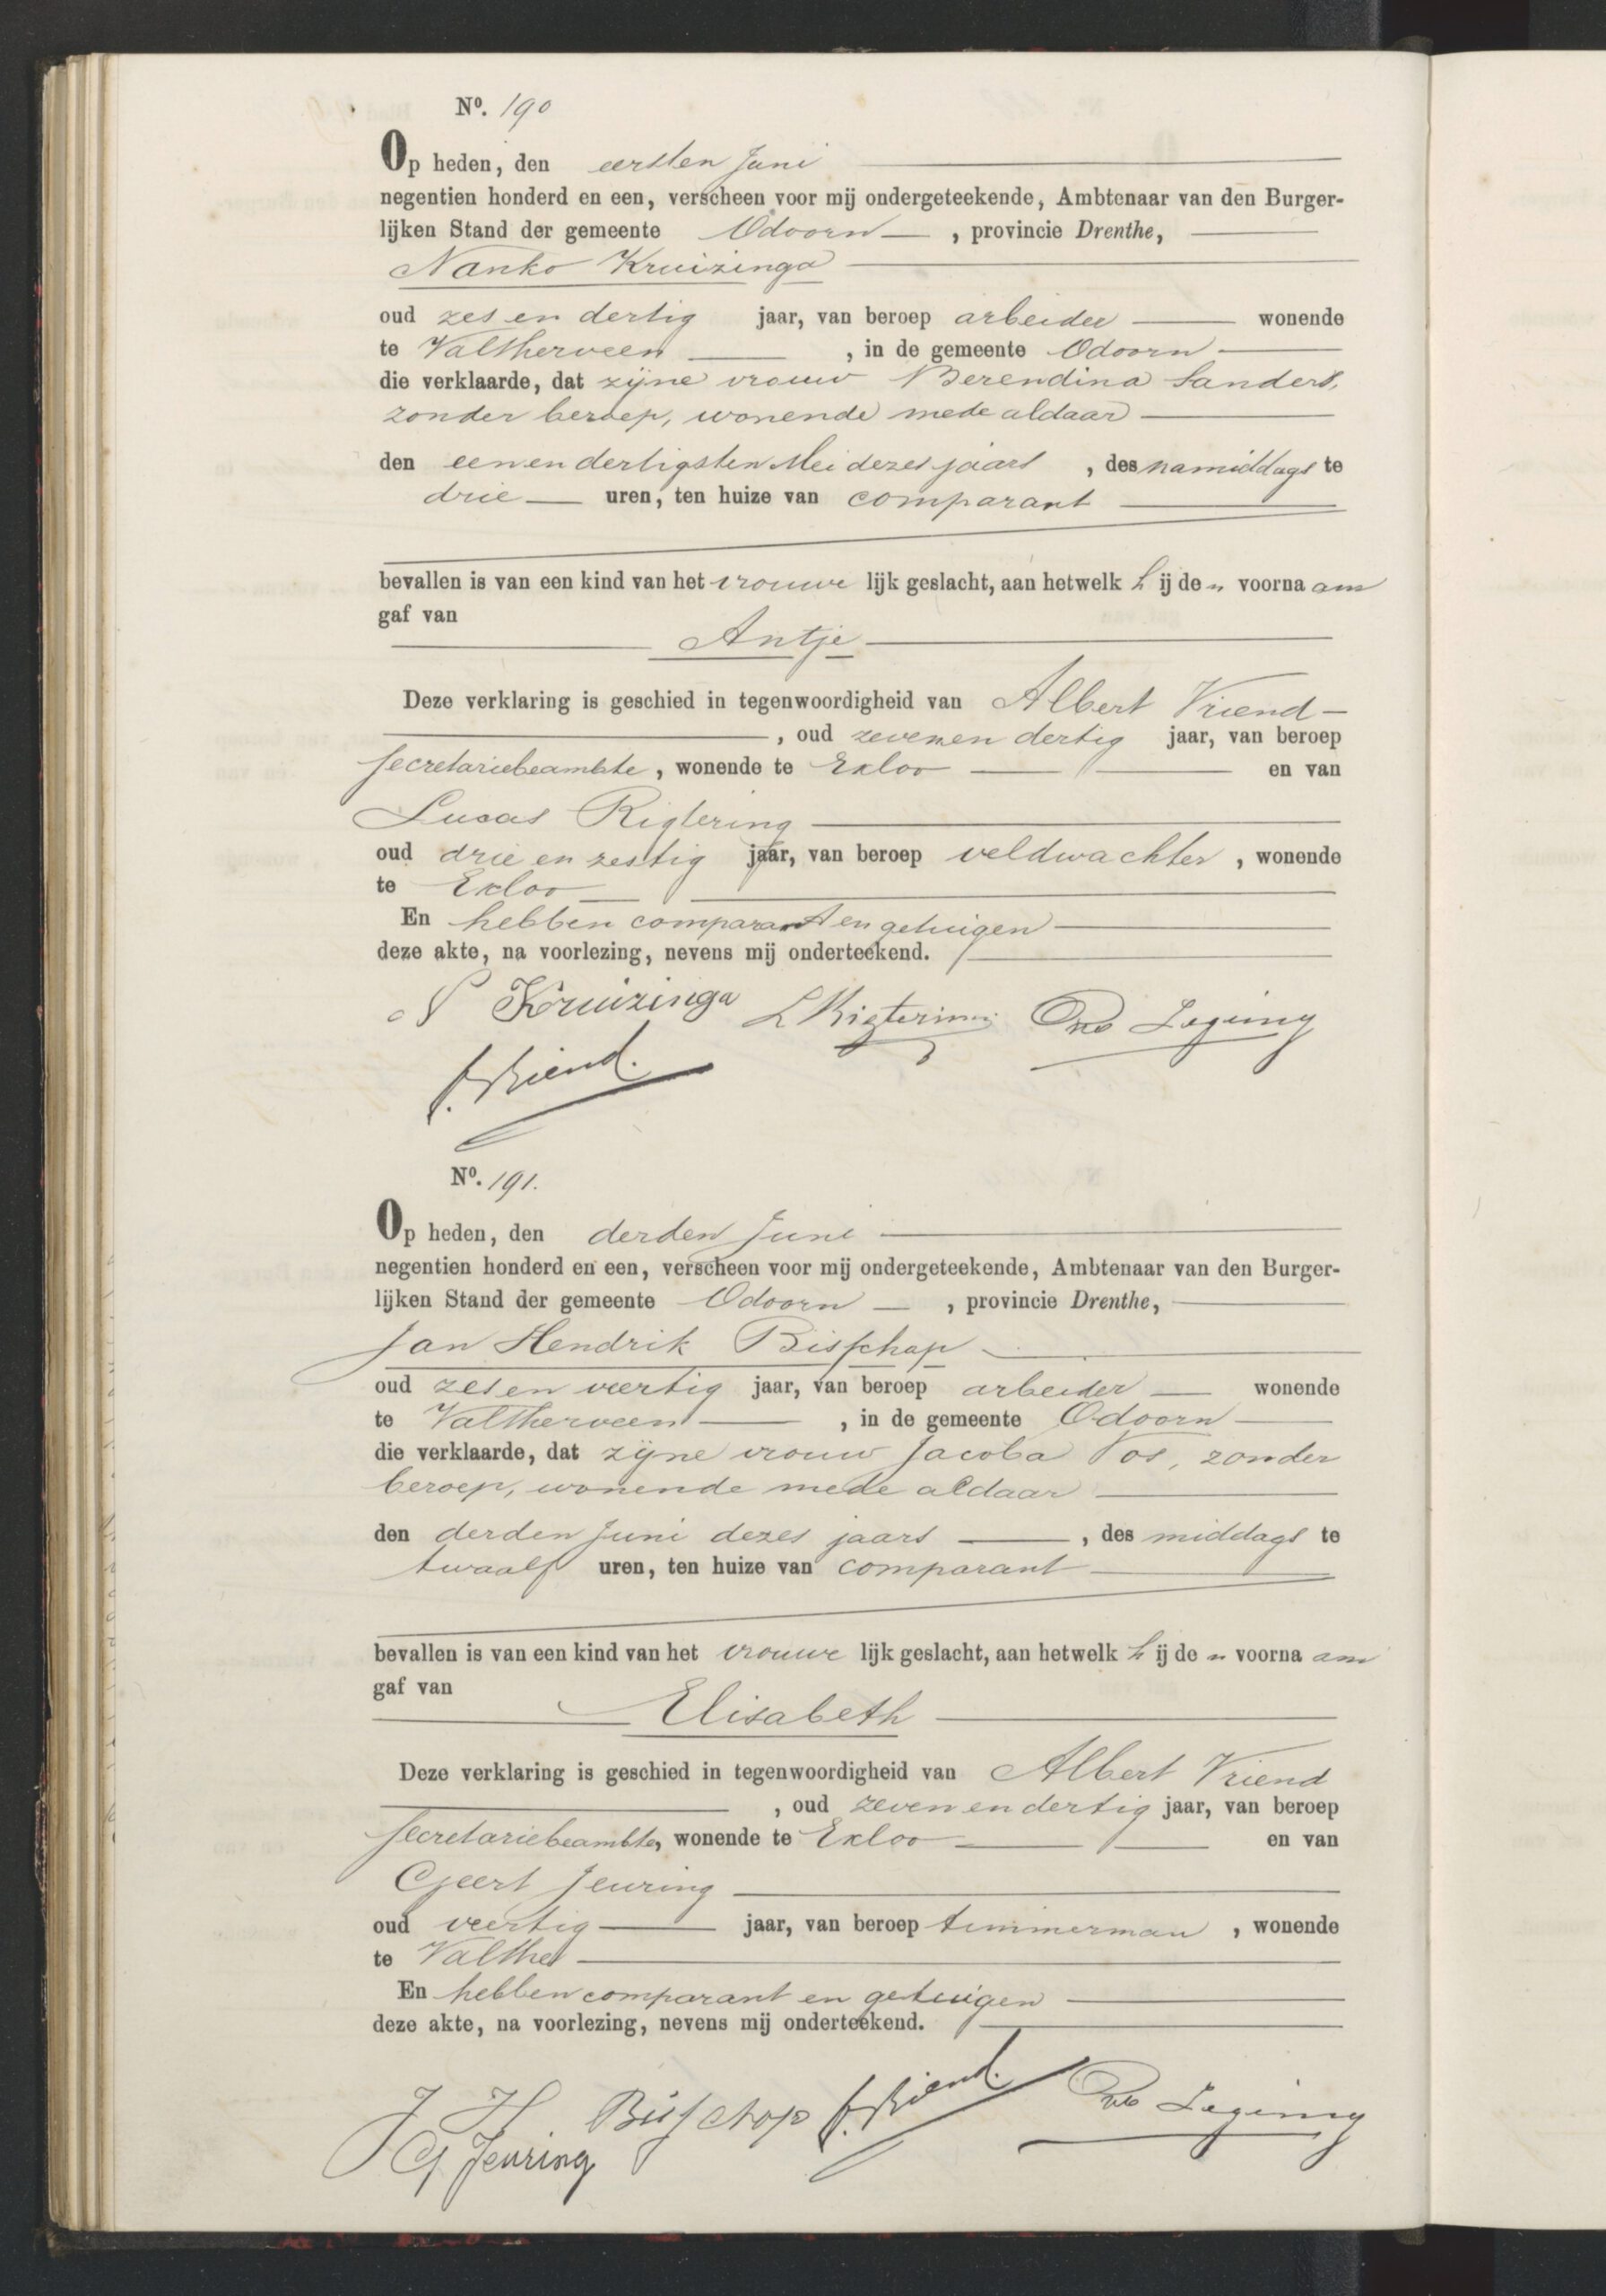 Nº. 190
Op heden, den eersten Juni
negentien honderd en een, verscheen voor mij ondergeteekende, Ambtenaar van den Burger-
lijken Stand der gemeente Odoorn, provincie Drenthe,
Nanko Kruizinga
oud zes en dertig jaar, van beroep arbeider wonende
te Valtherveen, in de gemeente Odoorn
die verklaarde, dat zijne vrouw Berendina Sanders,
zonder beroep, wonende mede aldaar
den eenendertigsten Mei dezes jaars, des namiddags te
drie uren, ten huize van comparant
bevallen is van een kind van het vrouwelijk geslacht, aan hetwelk hij den voornaam
gaf van
Antje
Deze verklaring is geschied in tegenwoordigheid van Albert Vriend
, oud zevenen dertig jaar, van beroep
secretariebeambte, wonende te Exloo en van
Lucas Rigtering
oud drie en zestig jaar, van beroep veldwachter, wonende
te Exloo
En hebben comparant en getuigen
deze akte, na voorlezing, nevens mij onderteekend.
N Kruizinga L Rigtering
A. Vriend.
Nº. 191.
Op heden, den derden Juni
negentien honderd en een, verscheen voor mij ondergeteekende, Ambtenaar van den Burger-
lijken Stand der gemeente Odoorn, provincie Drenthe,
Jan Hendrik Bisschop
oud zes en veertig jaar, van beroep arbeider wonende
te Valtherveen, in de gemeente Odoorn
die verklaarde, dat zijne vrouw Jacoba Vos, zonder
beroep, wonende mede aldaar
den derden Juni dezes jaars, des middags te
twaalf uren, ten huize van comparant
bevallen is van een kind van het vrouwelijk geslacht, aan hetwelk hij den voornaam
gaf van
Elisabeth
Deze verklaring is geschied in tegenwoordigheid van Albert Vriend
, oud zeven en dertig jaar, van beroep
secretariebeambte, wonende te Exloo en van
Geert Jeuring
oud veertig jaar, van beroep timmerman, wonende
te Valthe
En hebben comparant en getuigen
deze akte, na voorlezing, nevens mij onderteekend.
J H Bisschop A. Vriend.
G Jeuring